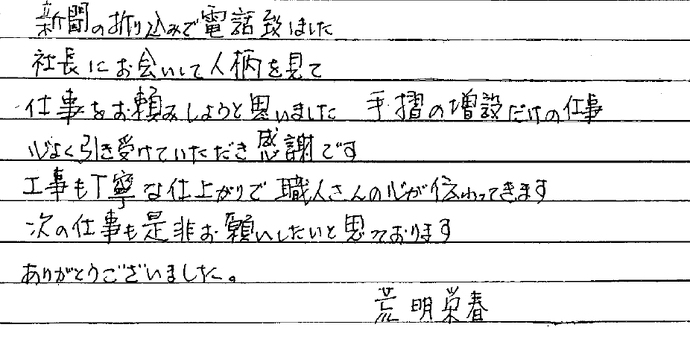 新聞の折り込みで電話致しました
社長にお会いして人柄を見て
仕事をお頼みしようと思いました 手摺の増設だけの仕事
心よく引き受けていただき感謝です
工事も丁寧な仕上がりで職人さんの心が伝わってきます
次の仕事も是非お願いしたいと思っております
ありがとうございました。
荒明栄春